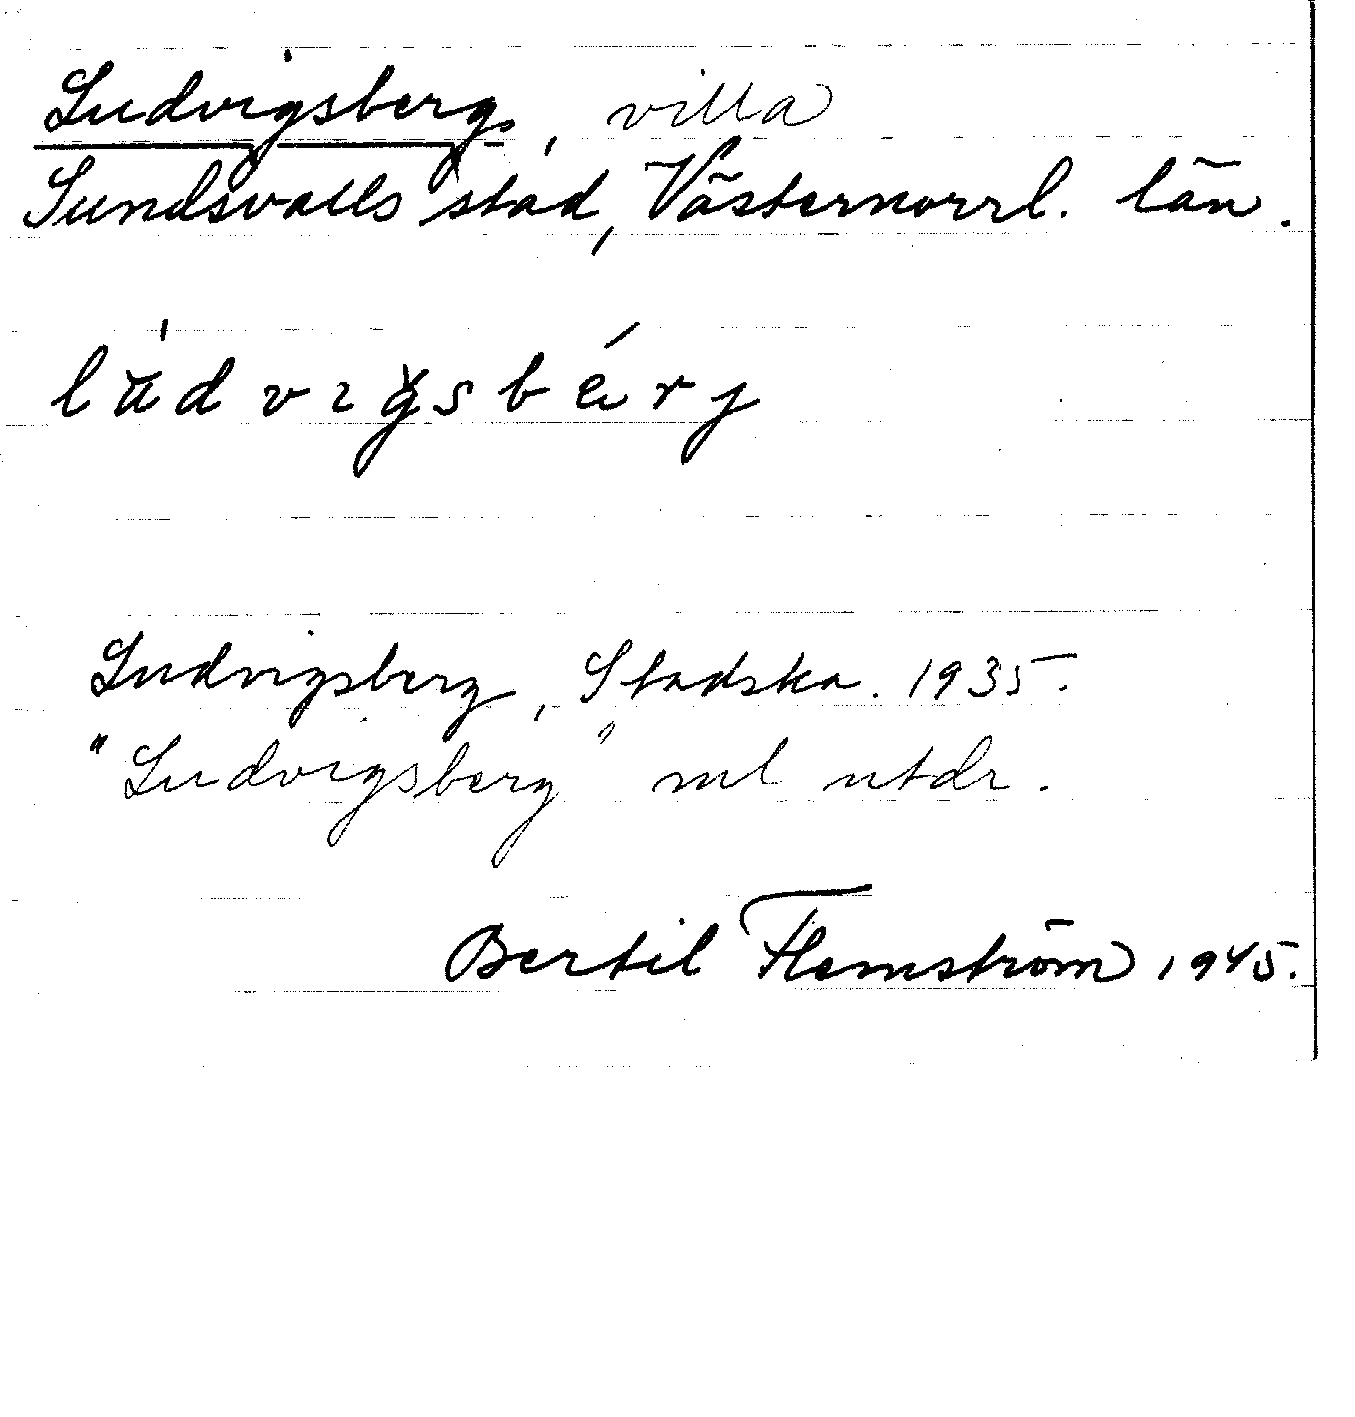 Ludvigsberg, villa
Sundsvalls stad, Västernorrl. län.
Ludvigsberg, Stadska. 1935.
"Ludvigsberg" ml utdr.
Bertil Flemström 1945.